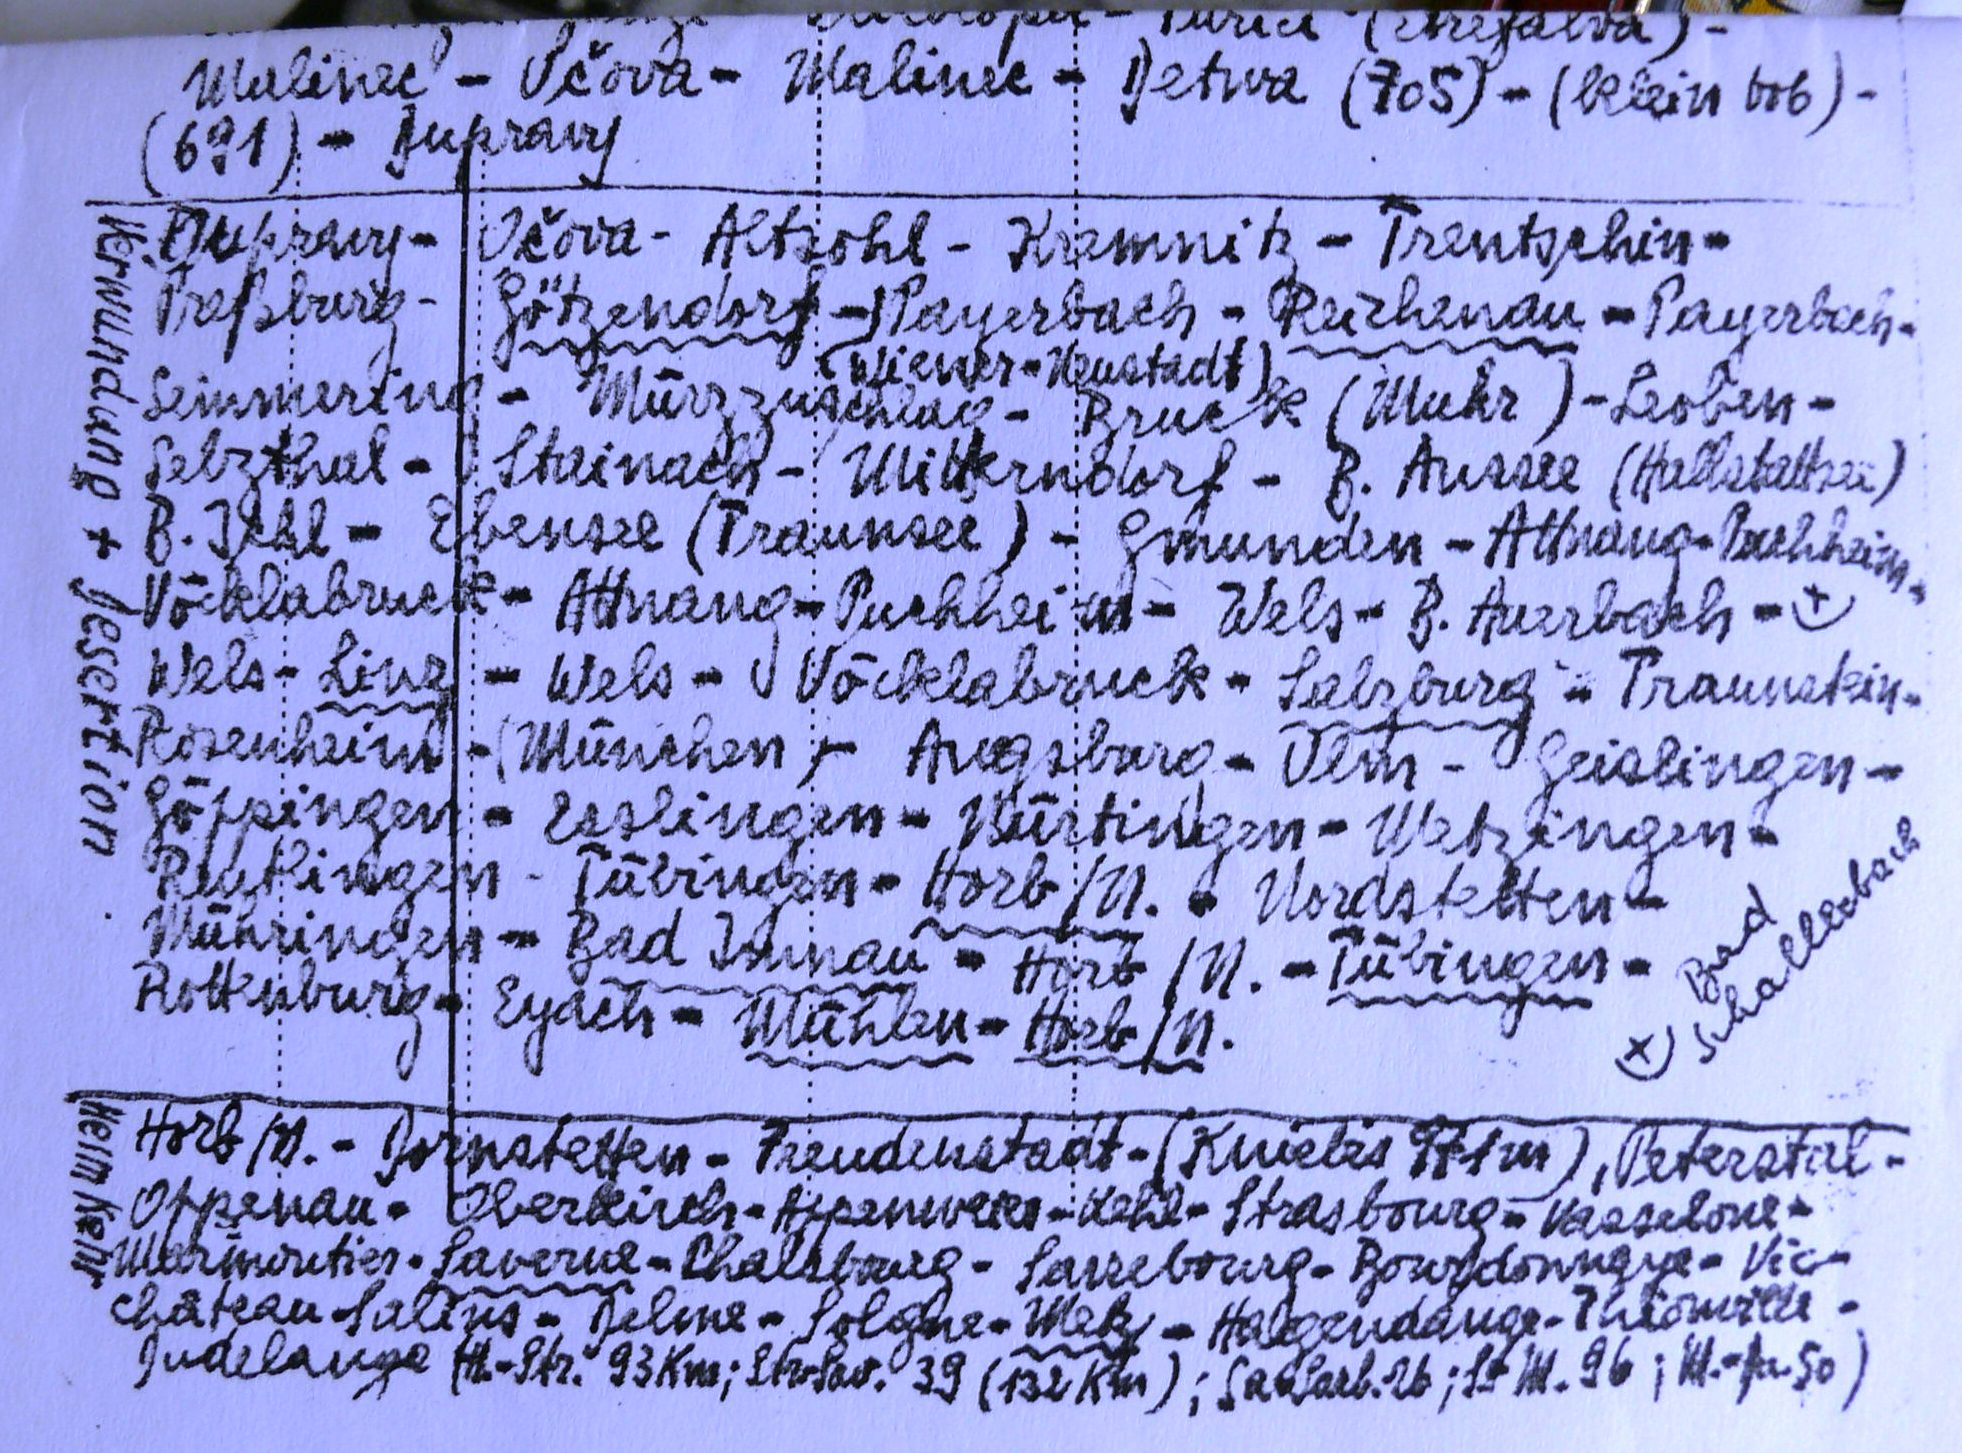 (Strefalva) -
Malinec - Očova - Malinec - Detwa (705) - (Klein bob) -
(691) - Dupravy
Verwundung + Desertion
Dupravy - Očova - Altsohl - Kremnitz - Trentschin -
Preßburg - Götzendorf - Payerbach - Reichenau - Payerbach -
(Wiener-Neustadt)
Semmering - Mürzzuschlag - Bruck (Muhr) - Leoben -
Selzthal - Stainach - Mitterndorf - B. Aussee (Hallstattsee)
B. Ischl - Ebensee (Traunsee) - Gmunden - Attnang-Puchheim -
Vöcklabruck - Attnang-Puchheim - Wels - B. Auerbach - +)
Wels - Linz - Wels - Vöcklabruck - Salzburg - Traunstein -
Rosenheim - (München) - Augsburg - Ulm - Geislingen -
Göppingen - Esslingen - Nürtingen - Metzingen -
Reutlingen - Tübingen - Horb/N. - Nordstetten -
Mühringen - Bad Imnau - Horb/N. - Tübingen -
Rottenburg - Eyach - Mühlen - Horb/N.
+) Bad
Schallerbach
Heimkehr
Horb/N. - Dornstetten - Freudenstadt - (Kniebis 971m), Peterstal -
Oppenau - Oberkirch - Appenweier - Kehl - Strasbourg - Wasselone -
Marmoutier - Saverne - Phalsbourg - Sarrebourg - Bourdonnaye - Vic -
château-Salins - Delme - Solgne - Metz - Hagendange - Thionville -
Dudelange (H.-Str. 93 Km; Str-Sav. 39 (132 Km); Sa-Sarb. 26; S-M. 96; M.-Du. 50)